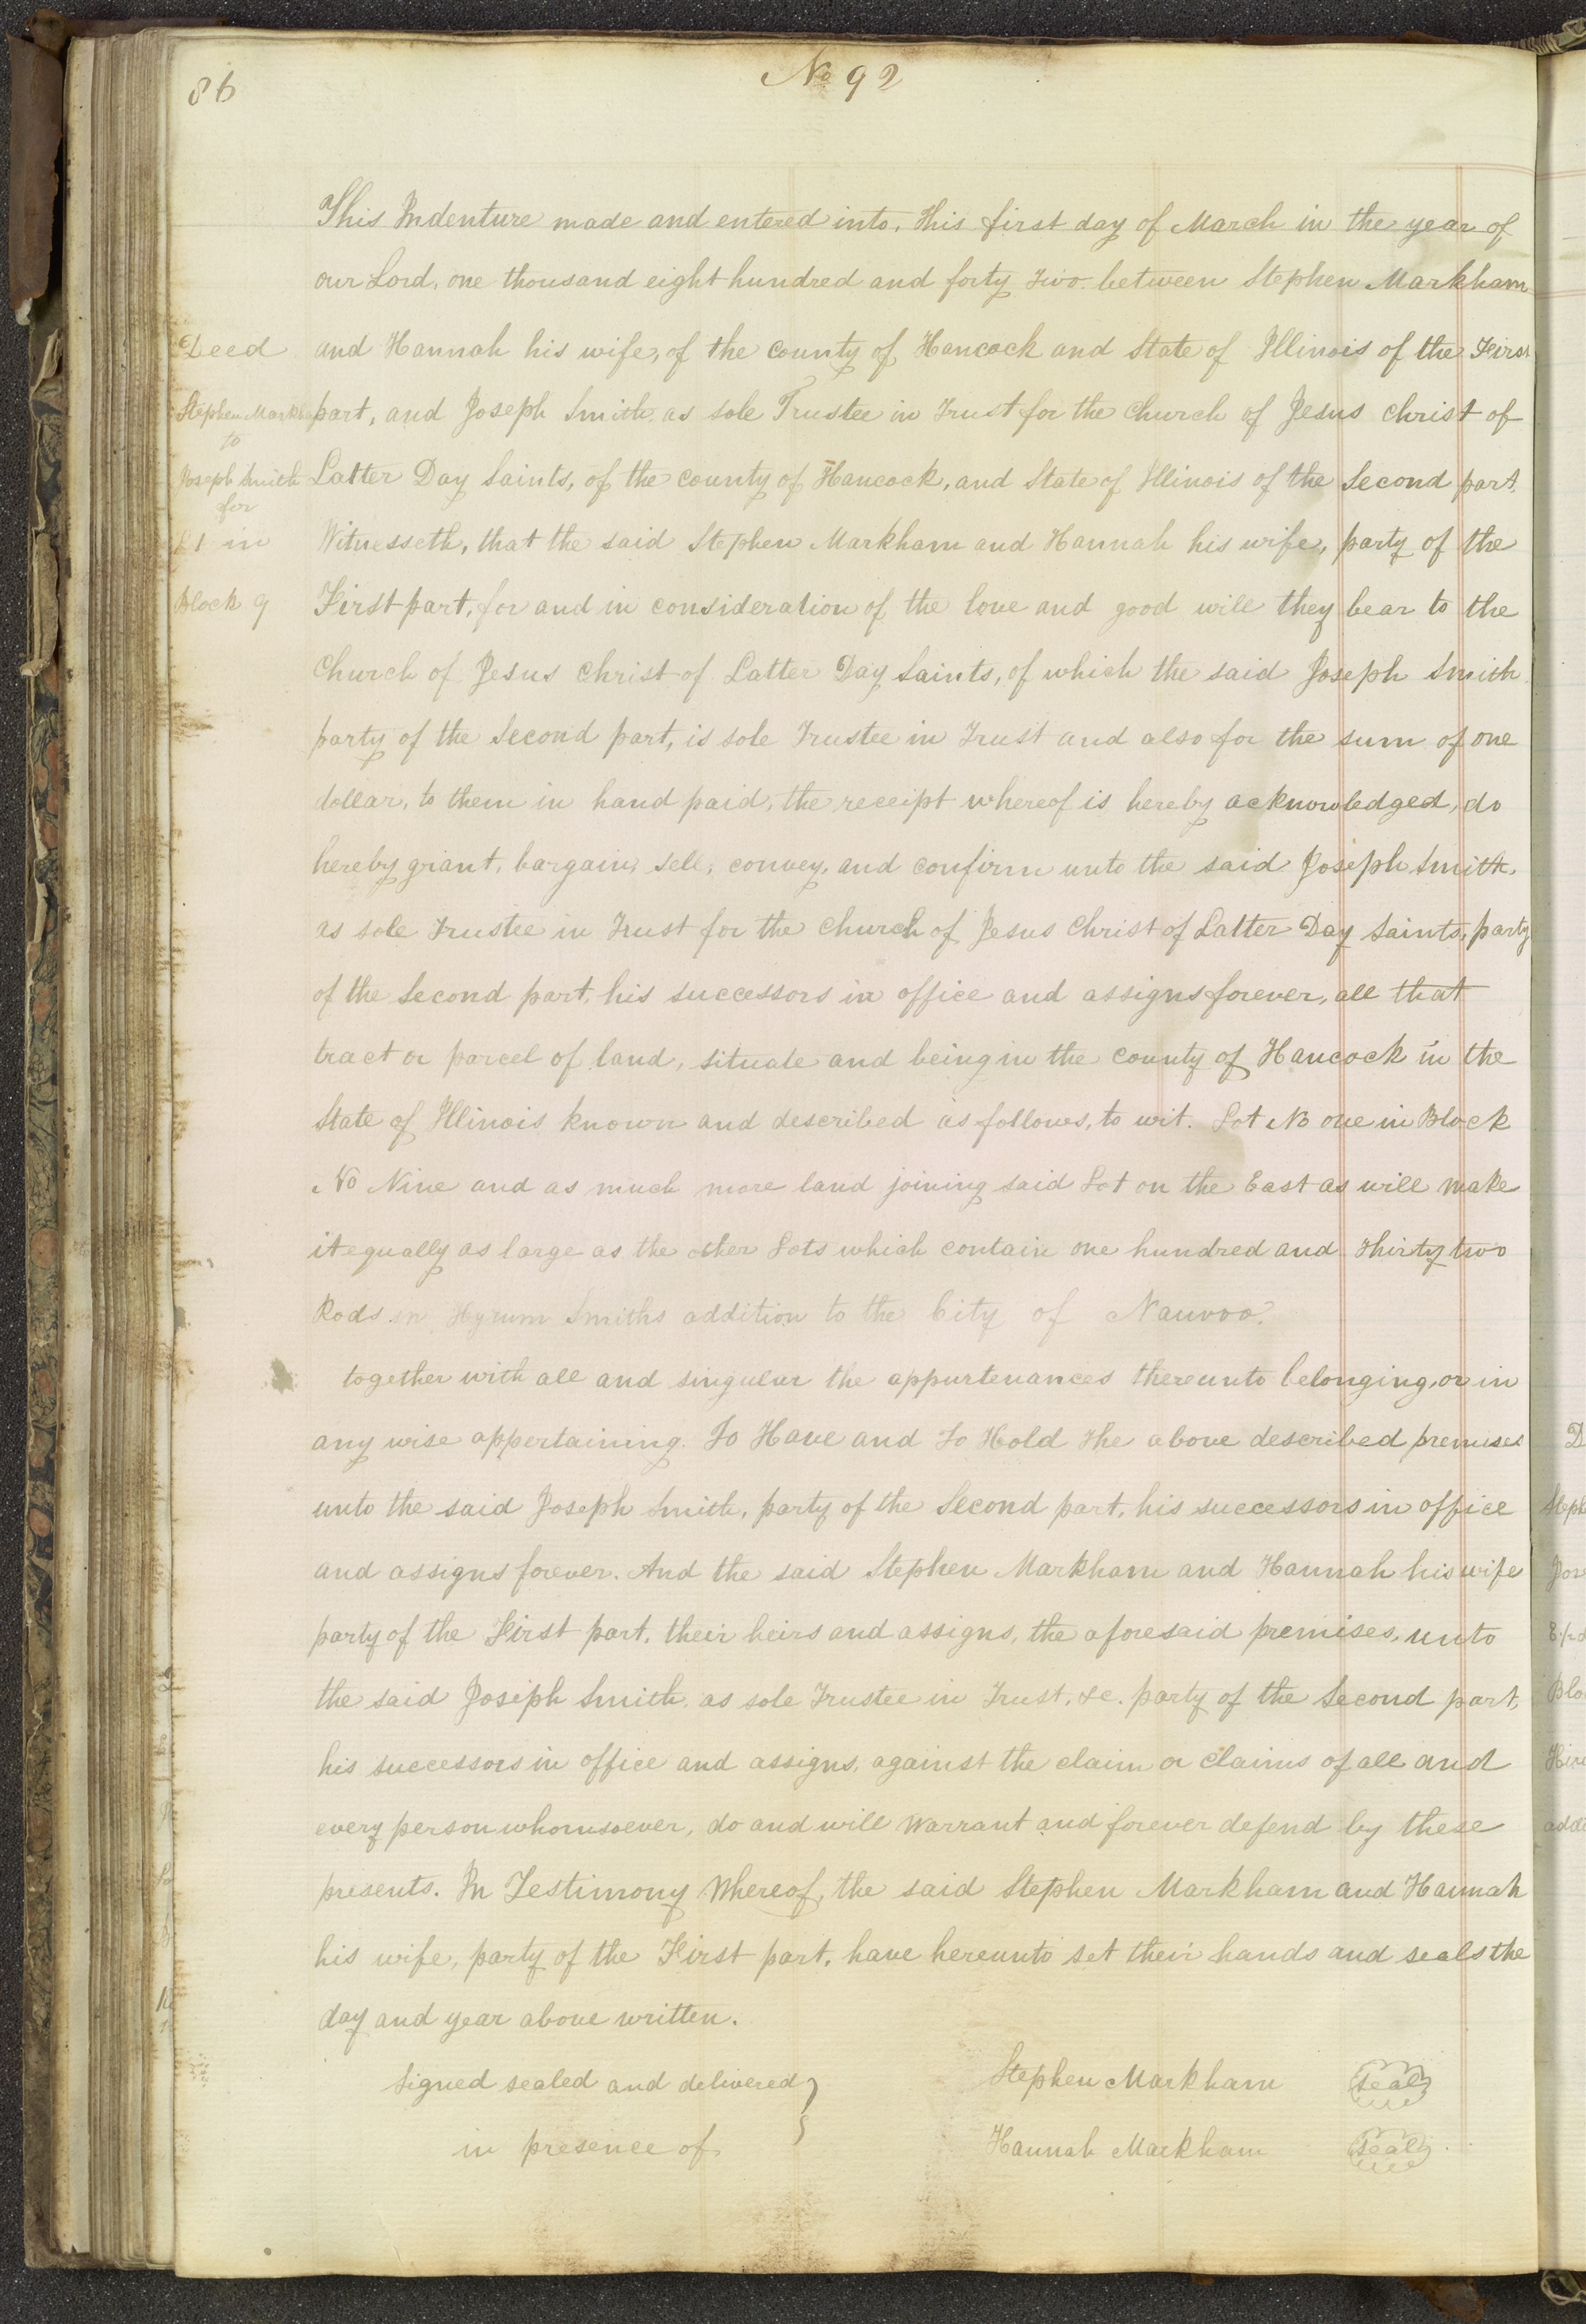 86
No 92
This Indenture made and entered into, this first day of March in the year of
our Lord, one thousand eight hundred and forty two between Stephen Markham
Deed
and Hannah his wife, of the county of Hancock and State of Illinois of the First
Stephen Markham
part, and Joseph Smith, as sole Trustee in Trust for the Church of Jesus Christ of
to
Joseph Smith
Latter Day Saints, of the county of Hancock, and State of Illinois of the Second part,
for
Lt in
Witnesseth, that the said Stephen Markham and Hannah his wife, party of the
Block 9
First part, for and in consideration of the love and good will they bear to the
Church of Jesus Christ of Latter Day Saints, of which the said Joseph Smith
party of the Second part, is sole Trustee in Trust and also for the sum of one
dollar, to them in hand paid, the receipt whereof is hereby acknowledged, do
hereby grant, bargain, sell, convey, and confirm unto the said Joseph Smith,
as sole Trustee in Trust for the Church of Jesus Christ of Latter Day Saints, party
of the Second part, his successors in office and assigns forever, all that
tract or parcel of land, situate and being in the county of Hancock in the
State of Illinois known and described as follows, to wit. Lot No one in Block
No Nine and as much more land joining said Lot on the East as will make
it equally as large as the other Lots which contain one hundred and thirty two
Rods in Hyrum Smiths addition to the City of Nauvoo.
together with all and singular the appurtenances thereunto belonging, or in
any wise appertaining. To Have and To Hold the above described premises
unto the said Joseph Smith, party of the Second part, his successors in office
and assigns forever. And the said Stephen Markham and Hannah his wife
party of the First part, their heirs and assigns, the aforesaid premises, unto
the said Joseph Smith, as sole Trustee in Trust, &c. party of the Second part,
his successors in office and assigns, against the claim or claims of all and
every person whomsoever, do and will Warrant and forever defend by these
presents. In Testimony Whereof, the said Stephen Markham and Hannah
his wife, party of the First part, have hereunto set their hands and seals the
day and year above written.
Signed sealed and delivered
in presence of
Stephen Markham seal
Hannah Markham seal